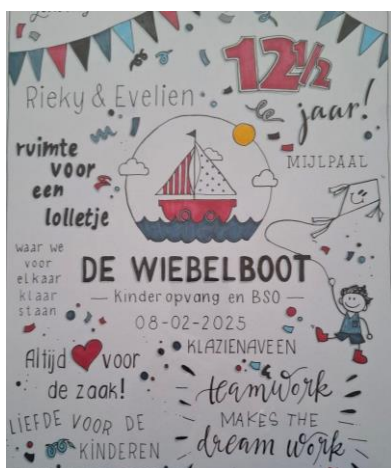 12½
Rieky & Evelien
jaar!
ruimte
voor
een
lolletje
MIJLPAAL
waar we
voor
elkaar
klaar
staan
DE WIEBELBOOT
— Kinderopvang en BSO —
08-02-2025
KLAZIENAVEEN
Altijd voor
de zaak!
teamwork
MAKES THE
dream work
LIEFDE VOOR DE
KINDEREN